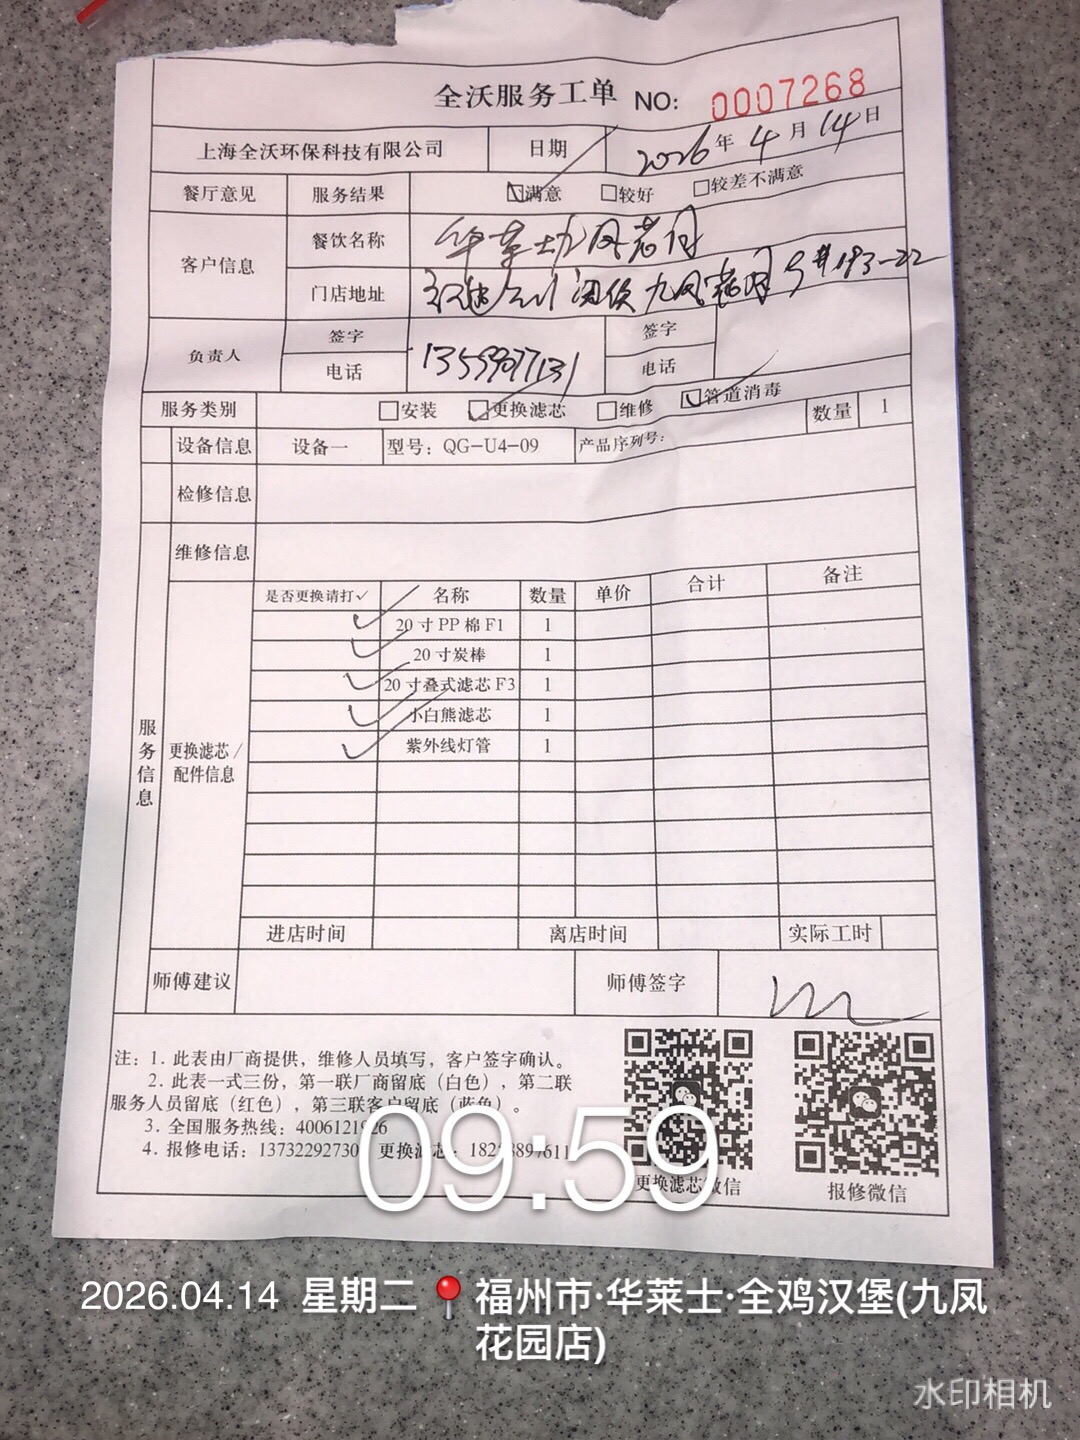 全沃服务工单 NO: 0007268
上海全沃环保科技有限公司 日期 2026年4月14日
餐厅意见 服务结果 ☑满意 □较好 □较差不满意
客户信息 餐饮名称 华莱士九凤花园
门店地址 福建福州 九凤花园 5#193-22
负责人 签字 签字
电话 13559077131 电话
服务类别 □安装 ☑更换滤芯 □维修 ☑管道消毒 数量 1
设备信息 设备一 型号：QG-U4-09 产品序列号：
检修信息
维修信息
是否更换请打✓ 名称 数量 单价 合计 备注
✓ 20寸PP棉F1 1
✓ 20寸炭棒 1
✓ 20寸叠式滤芯F3 1
✓ 小白熊滤芯 1
✓ 紫外线灯管 1
服务信息
更换滤芯/
配件信息
进店时间 离店时间 实际工时
师傅建议 师傅签字
注：1. 此表由厂商提供，维修人员填写，客户签字确认。
2. 此表一式三份，第一联厂商留底（白色），第二联
服务人员留底（红色），第三联客户留底（蓝色）。
3. 全国服务热线：4006121926
4. 报修电话：13732292730 更换滤芯：
更换滤芯微信 报修微信
09:59
2026.04.14 星期二 福州市·华莱士·全鸡汉堡(九凤
花园店)
水印相机